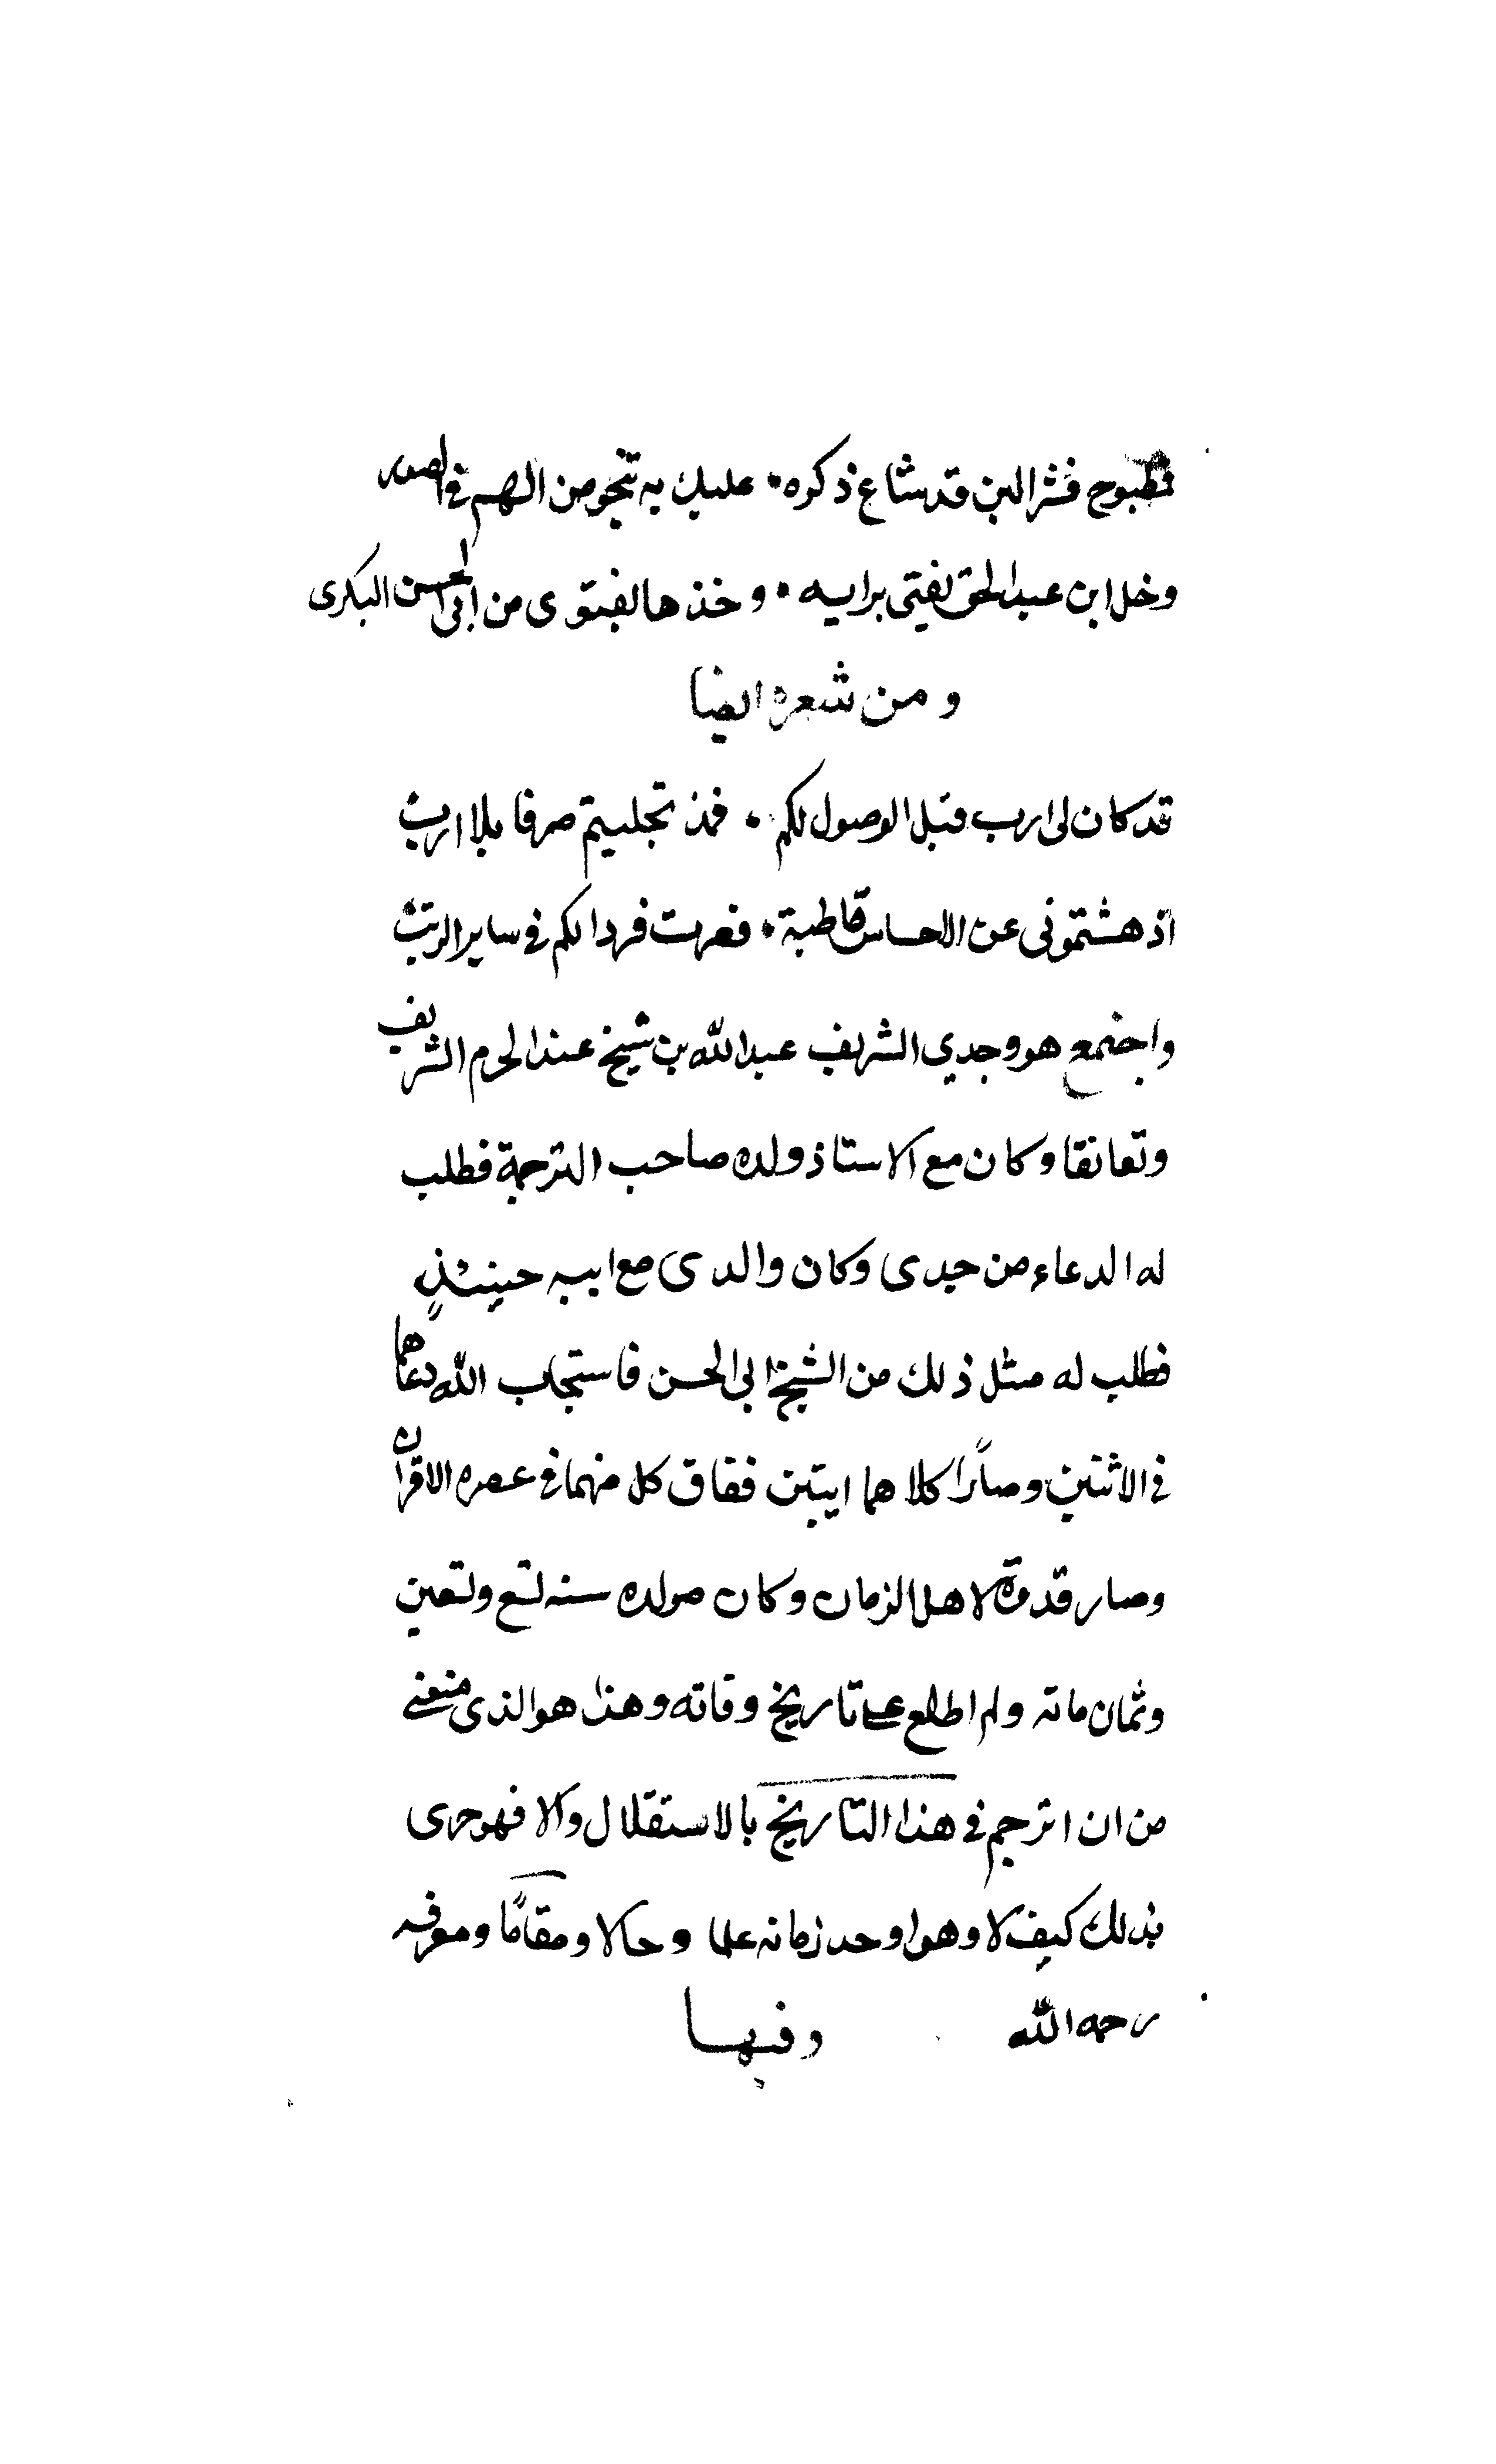 فمطبوح قشر البن قد شاع ذكره • عليك به تنجو من الهم في الصدر
وخل ابن عبد الحق يفتي برايه • وخذها لفتوى من ابي الحسن البكرى
ومن شعره ايضا
قد كان لى ارب قبل الوصول لكم • فمذ تجليتم صرفا بلا ارب
اذهشتمونى عن الاحساس قاطبة • فصرت فردا لكم في ساير الرتب
واجتمع هو وجدي الشريف عبد الله بن شيخ عند الحرم الشريف
وتعانقا وكان مع الاستاذ ولده صاحب الترجمة فطلب
له الدعاء من جدى وكان والدى مع ابيه حينئذٍ
فطلب له مثل ذلك من الشيخ ابى الحسن فاستجاب الله دعاهما
في الاثنين وصارا كلاهما ايتين ففاق كل منهما في عصره الاقران
وصار قدوة لاهل الزمان وكان مولده سنه تسع وتسعين
وثمان مائه ولم اطلع على تاريخ وفاته وهذا هو الذى منعنى
من ان اترجم في هذا التاريخ بالاستقلال والا فهو حرى
بذلك كيف لا وهو اوحد زمانه علما وحالا ومقامًا ومعرفه
رحمه الله وفيها